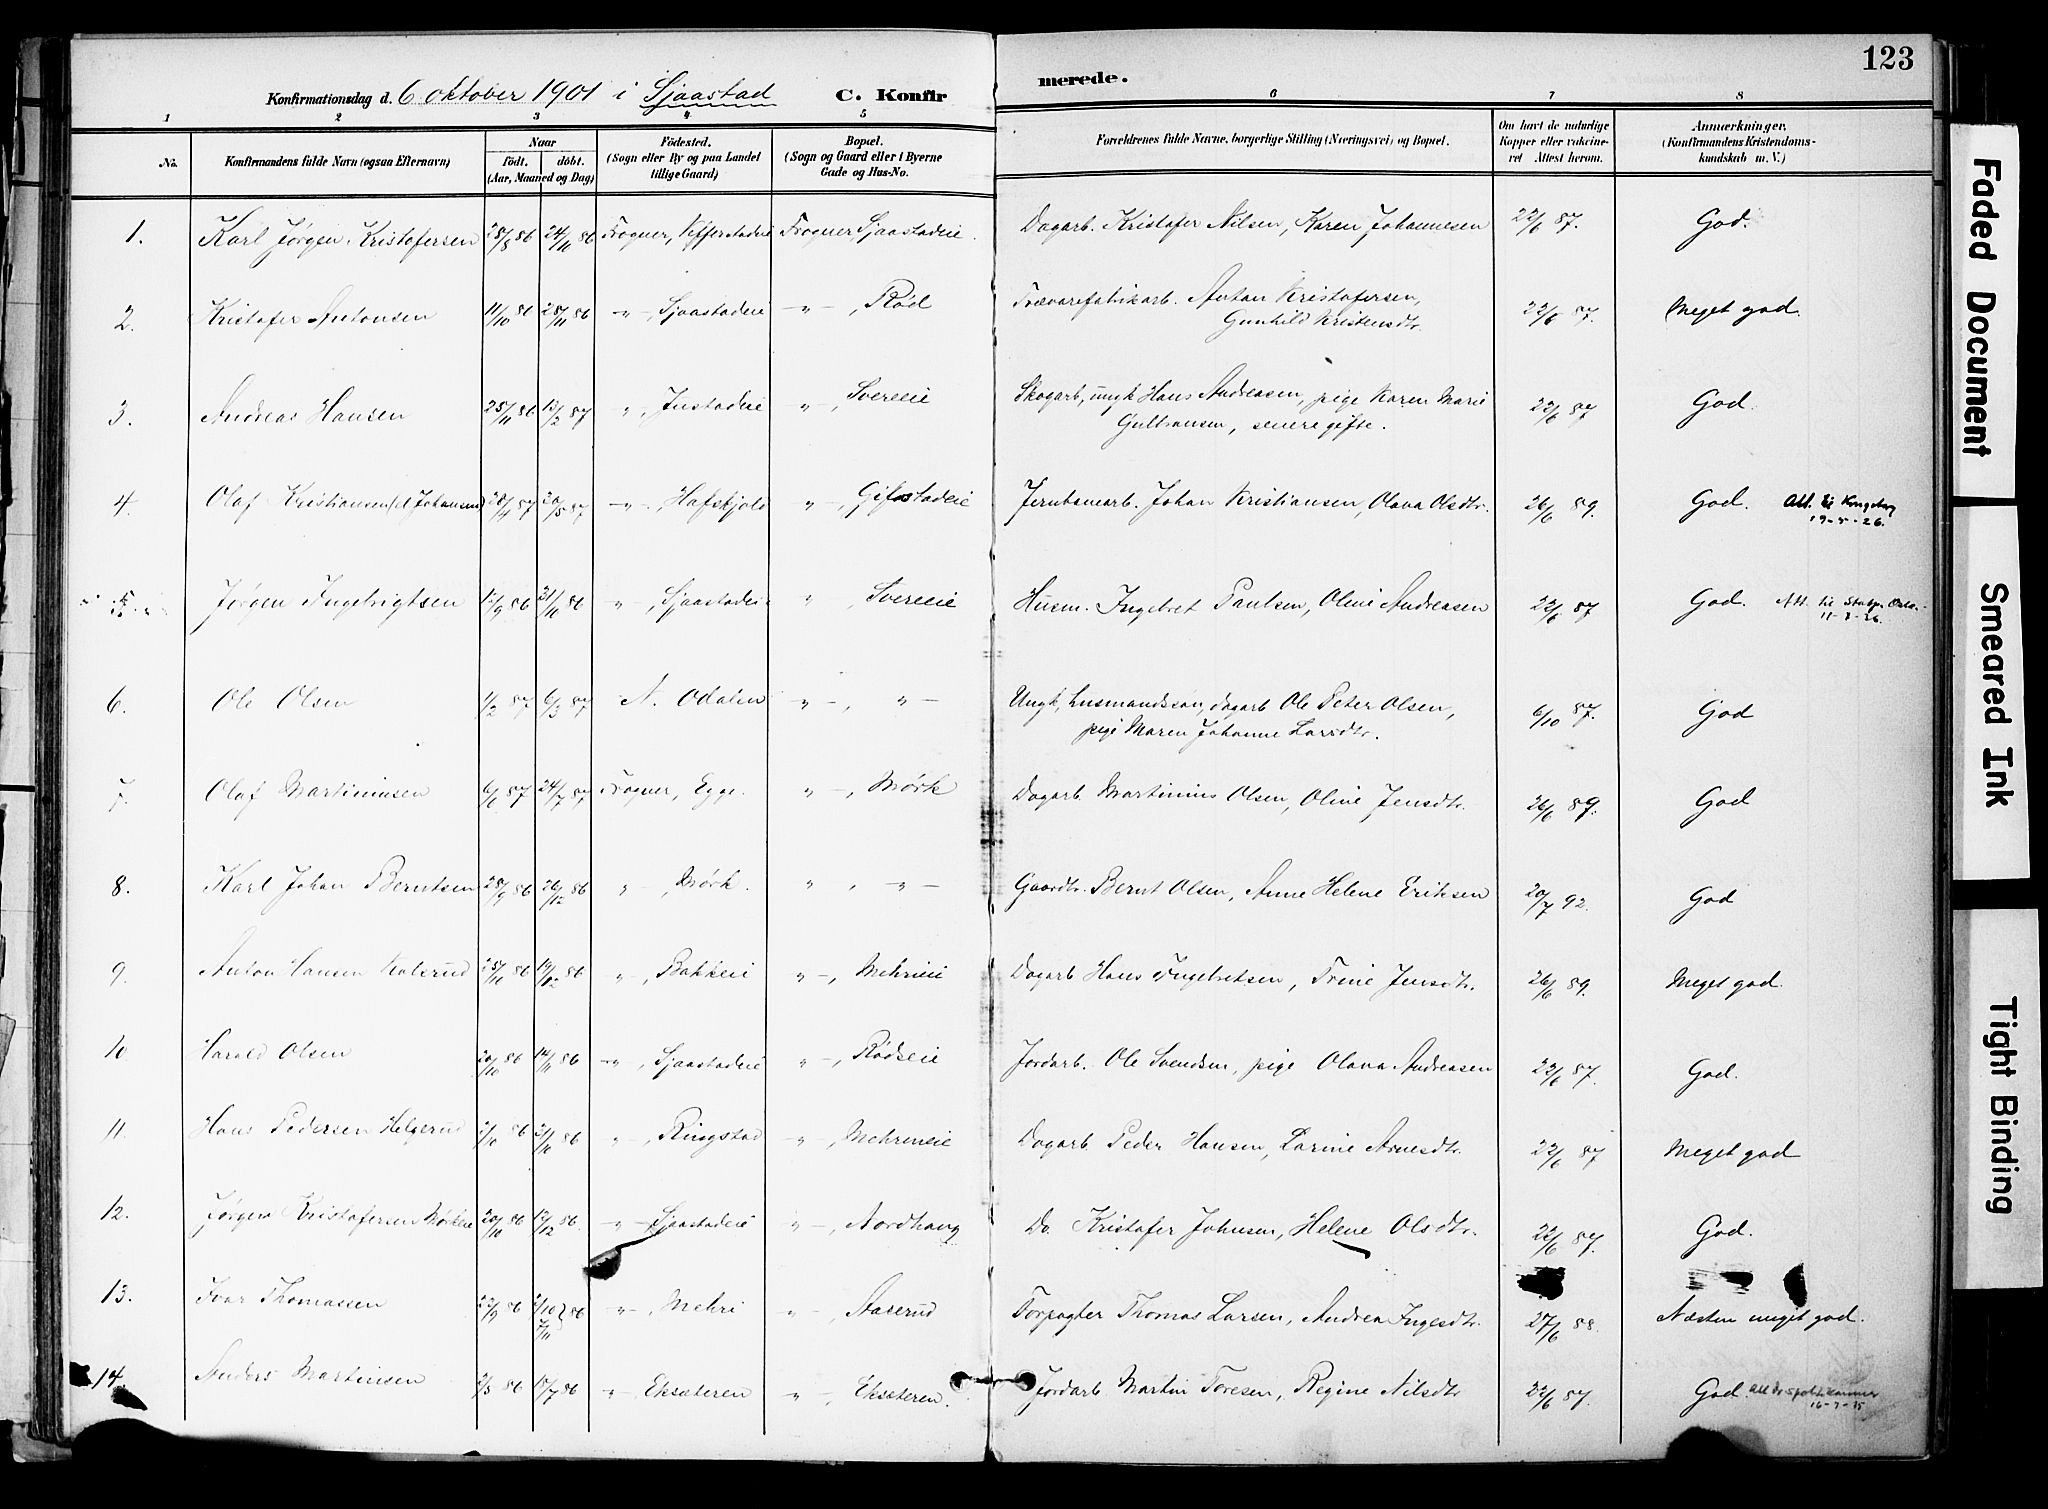 123
Konfirmationsdag d. 6 oktober 1901 i Sjaastad C. Konfirmerede.
1 2 3 4 5 6 7 8
No. Konfirmandens fulde Navn (ogsaa Efternavn) Naar født. døbt. (Aar, Maaned og Dag) Fødested. (Sogn eller By og paa Landet tillige Gaard) Bopæl. (Sogn og Gaard eller i Byerne Gade og Hus-No. Forældrenes fulde Navne, borgerlige Stilling (Næringsvei) og Bopæl. Om havt de naturlige Kopper eller vakcineret Attest herom. Anmærkninger. (Konfirmandens Kristendomskundskab m. V.)
1. Karl Jørgen Kristofersen 28/8 86 24/10 86 Frogner, Vefferstadeie Frogner, Sjaastadeie. Dagarb. Kristofer Nilsen, Karen Johannesen 22/6 87. God.
2. Kristofer Antonsen 11/10 86 28/11 86 -"-, Sjaastadeie -"-, Rød Trævarefabrikarb. Anton Kristofersen, 22/6 87. Meget god.
Gunhild Kristensdtr.
3. Andreas Hansen 25/11 86 13/2 87 -"-, Justadeie -"-, Svereeie Skogarb, ungk Hans Andreasen, pige Karen Marie 22/6 87 God.
Gulbransen, senere gifte.
4. Olaf Kristiansen (l Johansen) 28/4 87 20/5 87 -"-, Hafskjold -"-, Gifstadeie Jernbanearb. Johan Kristiansen, Olava Olsdtr. 26/6 89. God. Att. til Kongsberg
19-5-26.
5 Jørgen Ingebrigtsen 12/9 86 31/10 86 -"-, Sjaastadeie " , Svereeie Husm. Ingebret Paulsen, Oline Andreasen 22/6 87 God. Att. til
11-3-26.
6. Ole Olsen 1/2 87 6/3 87 N. Odalen -"-, -"- Ungk, husmandssøn, dagarb Ole Peter Olsen, 6/10 87. God
pige Maren Johanne Larsdtr.
7. Olaf Martiniusen 6/6 87 24/7 87 Frogner, Egge. " -, Mørk Dagarb. Martinius Olsen, Oline Jensdtr. 26/6 89. God
8. Karl Johan Berntsen 28/9 86 26/12 86 " -, Mørk. " , -"- Gaardbr. Bernt Olsen, Anne Helene Eriksen 20/7 92. God
9. Anton Hansen Kalsrud 25/10 86 19/12 86 -"-, Bakkeie -"-, Mehrieie Dagarb Hans Ingebretsen, Trine Jensdtr. 26/6 89. Meget god.
10. Harald Olsen 20/10 86 14/11 86 -"-, Sjaastadeie "-, Rødseie Jordarb. Ole Svendsen, pige Olava Andreasen 22/6 87. God.
11. Hans Pedersen Helgerud /10 86 31/10 86 -"-, Ringstad -"-, Mehrieie Dagarb. Peder Hansen, Larine Arnesdtr. 22/6 87 Meget god
12. Jørgen Kristofersen Mørkeie 20/10 86 12/12 86. -"- Sjaastadeie "-, Nordhaug Do. Kristofer Johnsen, Helene Olsdtr. 22/6 87. God.
13. Ivar Thomassen 22/9 86 /10 7/11 86 -"-, Mehri "-, Aaserud Forpagter Thomas Larsen, Andrea Ingesdtr. 27/6 88. Næsten meget god.
14. Anders Martinsen 2/5 86 /7 86 -"-, Eksæteren "-, Eksæteren. Jordarb. Martin Toresen, Regine Nilsdtr 22/6 87. God.
16-7-15
Faded Document
Smeared Ink
Tight Binding